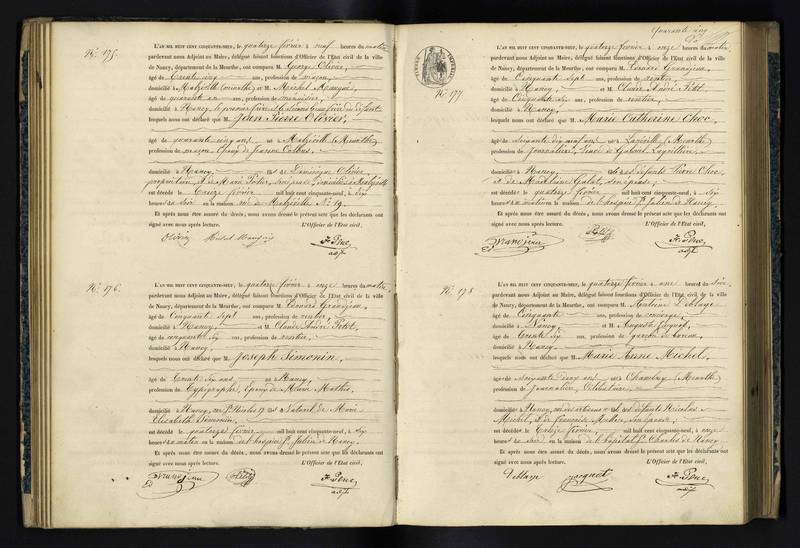 No. 175.
L'AN MIL HUIT CENT CINQUANTE-NEUF, le quatorze février à neuf heures du matin
pardevant nous Adjoint au Maire, délégué faisant fonctions d'Officier de l'Etat civil de la ville
de Nancy, département de la Meurthe, ont comparu M. George Olivier,
âgé de trente cinq ans, profession de maçon,
domicilié à Malzéville (Meurthe) et M. Michel
âgé de quarante un ans, profession de
domicilié à Nancy, le premier frère
lesquels nous ont déclaré que M. Jean Pierre Olivier,
âgé de quarante cinq ans né à Malzéville (Meurthe)
profession de maçon, époux de Jeanne
domicilié à Nancy, fils de Dominique Olivier
propriétaire, et de Marie
est décédé le treize février mil huit cent cinquante-neuf, à six
heures du soir en la maison rue de Malzéville No. 19.
Et après nous être assuré du décès, nous avons dressé le présent acte que les déclarants ont
signé avec nous après lecture. L'Officier de l'Etat civil,
Olivier Michel
adjt
No. 176.
L'AN MIL HUIT CENT CINQUANTE-NEUF, le quatorze février à onze heures du matin,
pardevant nous Adjoint au Maire, délégué faisant fonctions d'Officier de l'Etat civil de la ville
de Nancy, département de la Meurthe, ont comparu M. Léonard Grandjean,
âgé de cinquante sept ans, profession de rentier,
domicilié à Nancy, et M. Claude André Petit,
âgé de cinquante six ans, profession de rentier,
domicilié à Nancy,
lesquels nous ont déclaré que M. Joseph Simonin,
âgé de trente six ans né à Nancy,
profession de typographe, époux de Marie Mathis,
domicilié à Nancy, rue St. Nicolas 19 fils naturel de Marie
Elisabeth Simonin,
est décédé le quatorze février mil huit cent cinquante-neuf, à six
heures du matin en la maison de l'hospice St. Julien de Nancy.
Et après nous être assuré du décès, nous avons dressé le présent acte que les déclarants ont
signé avec nous après lecture. L'Officier de l'Etat civil,
Grandjean Petit
adjt
Quarante cinq
No. 177
L'AN MIL HUIT CENT CINQUANTE-NEUF, le quatorze février à onze heures du matin,
pardevant nous Adjoint au Maire, délégué faisant fonctions d'Officier de l'Etat civil de la ville
de Nancy, département de la Meurthe, ont comparu M. Léonard Grandjean,
âgé de cinquante sept ans, profession de rentier,
domicilié à Nancy, et M. Claude André Petit,
âgé de cinquante six ans, profession de rentier,
domicilié à Nancy,
lesquels nous ont déclaré que M. Marie Catherine Choc,
âgé de soixante dix neuf ans née à Laneville (Meurthe)
profession de journalière, veuve de Gabriel
domicilié à Nancy, fille des défunts Pierre Choc
et de Madelaine
est décédé le quatorze février mil huit cent cinquante-neuf, à six
heures du matin en la maison de l'hospice St. Julien de Nancy.
Et après nous être assuré du décès, nous avons dressé le présent acte que les déclarants ont
signé avec nous après lecture. L'Officier de l'Etat civil,
Grandjean Petit
adjt
No. 178
L'AN MIL HUIT CENT CINQUANTE-NEUF, le quatorze février à une heure du soir,
pardevant nous Adjoint au Maire, délégué faisant fonctions d'Officier de l'Etat civil de la ville
de Nancy, département de la Meurthe, ont comparu M. Antoine Deblaye
âgé de cinquante ans, profession de concierge,
domicilié à Nancy et M. Auguste Jacquot,
âgé de trente six ans, profession de garçon de bureau
domicilié à Nancy,
lesquels nous ont déclaré que M. Marie Anne Michel,
âgé de soixante deux ans née à Chambrey (Meurthe)
profession de journalière, célibataire,
domicilié à Nancy, rue des fille des défunts Nicolas
Michel, et de Françoise
est décédé le treize février, mil huit cent cinquante-neuf, à onze
heures du soir en la maison de l'hôpital St. Charles de Nancy
Et après nous être assuré du décès, nous avons dressé le présent acte que les déclarants ont
signé avec nous après lecture. L'Officier de l'Etat civil,
Deblaye Jacquot
adjt